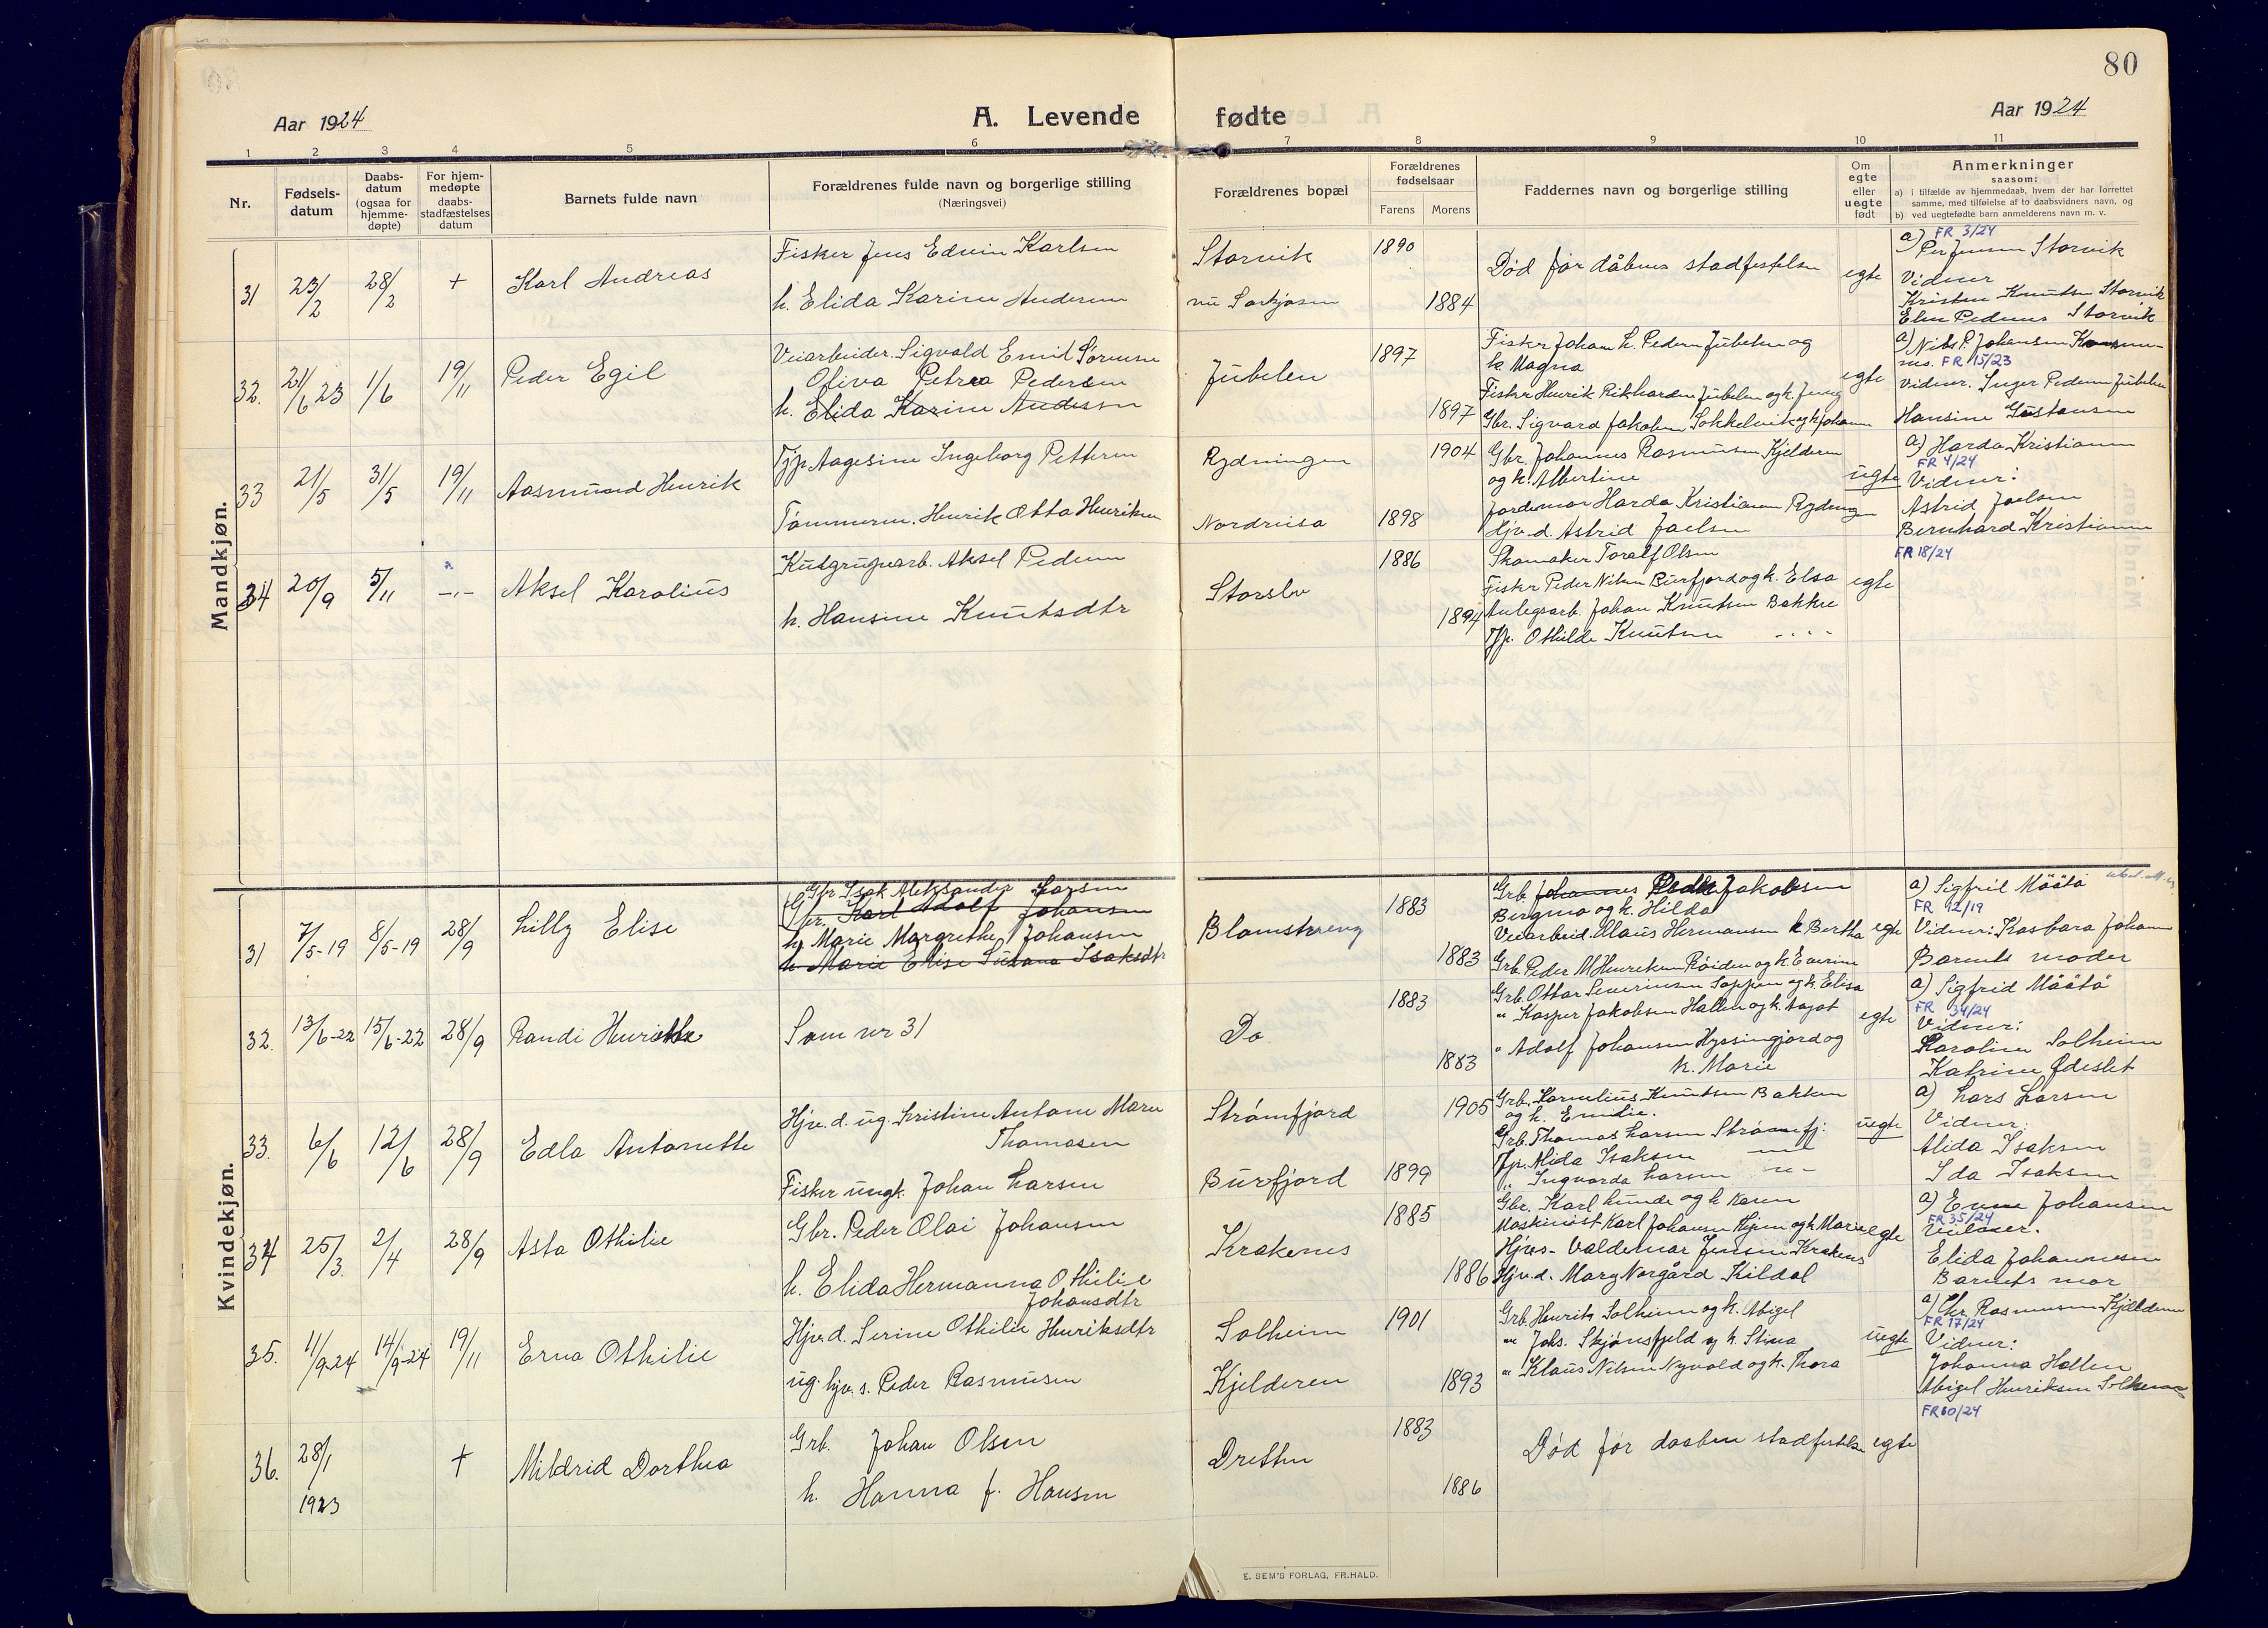 80
Aar 1924
A. Levende fødte
Aar 1924
1 2 3 4 5 6 7 8 9 10 11
Nr.
Fødsels-
datum
Daabs-
datum
(ogsaa for
hjemme-
døpte)
For hjem-
medøpte
daabs-
stadfæstelses
datum
Barnets fulde navn
Forældrenes fulde navn og borgerlige stilling
(Næringsvei)
Forældrenes bopæl
Forældrenes
fødselsaar
Farens Morens
Faddernes navn og borgerlige stilling
Om
egte
eller
uegte
født
Anmerkninger
saasom:
a) i tilfælde av hjemmedaab, hvem der har forrettet
samme, med tilføielse af to daabsvidners navn, og
b) ved uegtefødte barn anmelderens navn m. v.
Mandkjøn.
31 23/2 28/2 + Karl Andreas
Fisker Jens Edvin Karlsen
h. Elida Karine Andersen
Storvik
nu Sørkjosen
1890
1884
Død før dåbens stadfestelse
egte
a) FR 3/24
Per Jensen Storvik
Vidner
Kristen Knutsen Storvik
Elen Pedersen Storvik
32. 21/6 23 1/6 19/11 Peder Egil
Veiarbeider. Sigvald Emil Sørensen
Oliva Petrea Pedersen
h. Elida Karine Andersen
Jubelen
1897
1897
Fisker Johan L. Pedersen Jubelen og
h. Magna
Fisker Henrik Rikhardsen Jubelen og h. Jenny
Gbr. Sigvard Jakobsen Sokkelvik og h Johanne
egte
a) Nils P. Johansen
FR 15/23
vidner. Inger Pedersen Jubelen
Hansine Gustavsen
33 21/5 31/5 19/11 Aasmund Henrik
Tjp. Aagesine Ingeborg Pettersen
Tømmerm. Henrik Otto Henriksen
Rydningen
Nordreisa
1904
1898
Gbr. Johannes Rasmussen Kjelderen
og h. Albertine
Jordemor Harda Kristiansen Rydningen
Hjv. d. Astrid Joelsen
uegte
a) Harda Kristiansen
FR 4/24
Vidner:
Astrid Joelsen
Bernhard Kristiansen
34 20/9 5/11 -"- Aksel Karolius
Kisgrubearb. Aksel Pedersen
h. Hansine Knutsdtr
Storslv
1886
1894
Skomaker Toralf Olsen
Fisker Peder Nilsen Burfjord og h. Elsa
Anlegsarb. Johan Knutsen Bakke
Tjp. Othilde Knutsen
egte
FR 18/24
Kvindekjøn.
31 7/5-19 8/5-19 28/9 Lilly Elise
Gbr. Isak Aleksander Larsen
Gbr. Karl Adolf Johansen
h. Marie Margrethe Johansen
h. Marie Elise Susana Isaksdtr
Blomstereng
1883
1883
Grb. Johannes Peder Jakobsen
Bergmo og h. Hilda
Veiarbeid. Klaus Hermansen h. Bertha
Grb. Peder M Henriksen Røiden og h. Everine
egte
a) Sigfrid Määtä
FR 12/19
Vidner: Kasbara Johansen
Barnets moder
32. 13/6-22 15/6-22 28/9 Randi Henriette
Som nr 31
Do
1883
1883
Grb. Ottar Severinsen Soppen og h. Elisa
" Kasper Jakobsen Hallen og h. Aagot
" Adolf Johansen Hyssingjord og
h. Marie
egte
a) Sigfrid Määtä
FR 34/24
Vidner:
Karoline Solheim
Katrine Ødeslet
33. 6/6 12/6 28/9 Edla Antonette
Hjv. d. ug. Kristine Antone Marie
Thomasen
Fisker ungk. Johan Larsen
Strømfjord
Burfjord
1905
1899
Grb. Kornelius Knutsen Bakken
og h. Emilie.
Grb. Thomas Larsen Strømfj.
Tjp. Alida Isaksen
" Ingvarda Larsen -"-
uegte
a) Lars Larsen
Vidner:
Alida Isaksen
Ida Isaksen
34 25/3. 2/4 28/9 Asta Othilie
Gbr. Peder Olai Johansen
h. Elida Hermanna Othilie
Johansdtr
Krakenes
1885
1886
Gbr. Karl Lunde og h Karen
Maskinist Karl Johansen Hjem og h. Marie
Hjvs- Valdemar Jensen Krakenes
Hjv. d. Mary Norgård Kildal
egte
a) Johansen
FR 35/24
Vidner.
Elida Johannesen
Barnets mor
35. 11/9-24 14/9-24 19/11 Erna Othilie
Hjv. d. Serine Othilie Henriksdtr
ug. hjv. s. Peder Rasmussen
Solheim
Kjelderen
1901
1893
Grb. Henrik Solheim og h. Abigel
" Johs. Skjønsfjeld og h. Stina
" Klaus Nilsen Nyvold og h. Thora
uegte
a) Chr. Rasmussen Kjelderen
FR 17/24
Vidner:
Johanna Hallen
Abigel Henriksen Solheim
36. 28/1 1923 + Mildrid Dorthea
Grb. Johan Olsen
h. Hanna f. Hansen
Dretten
1883
1886
Død før daaben stadfestelse
egte
FR 60/24
E. SEM'S FORLAG, FR.HALD.